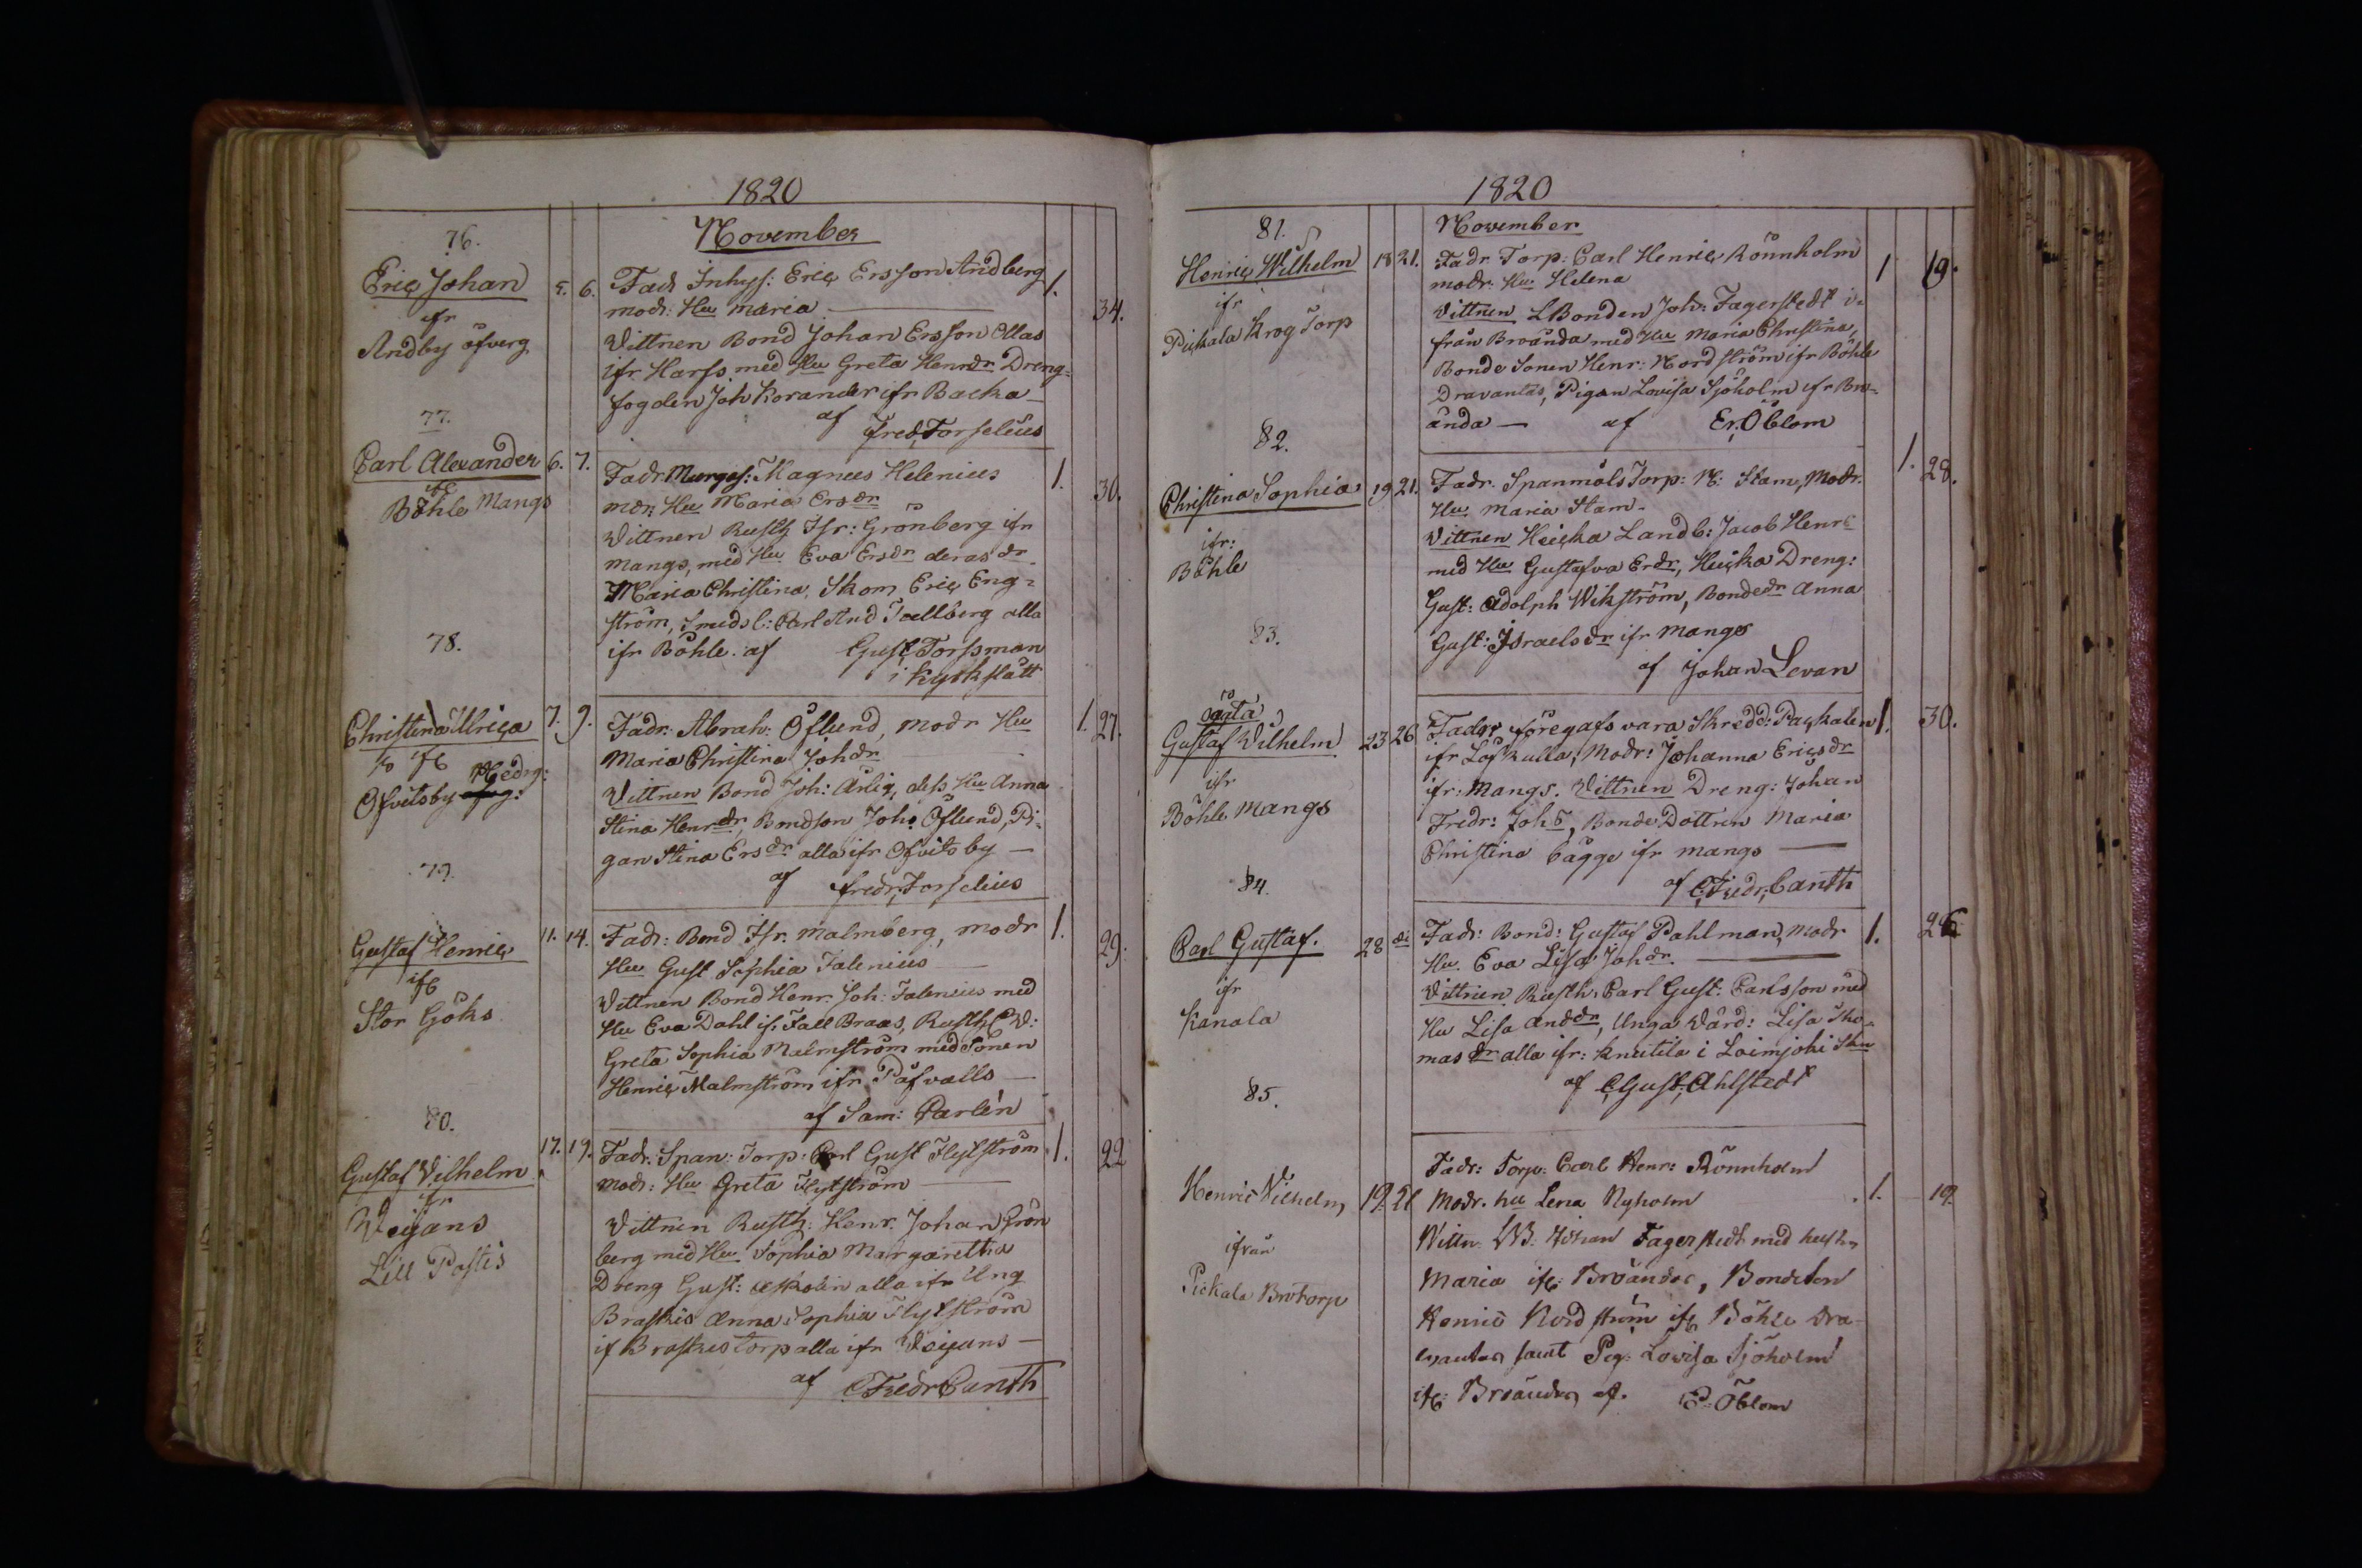 1820
November
76.
Eric Johan 5. 6. Fadr Inhys: Eric Ersson Andberg 1. 34.
ifr modr: Hu Maria
Andby öfverg Vittnen Bond Johan Ersson Ollas
ifr Harfs med Hu Greta Henrdr Dreng-
fogden Joh Korander ifr Backa
af
fred, Forselius
77.
Carl Alexander 6. 7. Fadr. Murges: Magnus Helenius 1. 30.
ifr modr: Hu Maria Ersdr
Böhle Mangs Vittnen Rusth Isr: Grönberg ifr
Mangs, med Hu Eva Ersdr deras dr
Maria Christina, Skom Eric Eng-
ström, Smeds l: Carl And Tallberg alla
ifr Böhle af Gust, Forssman
i Kyrkslätt
78.
Christina Ulrica 7. 9. Fadr. Abrah: Öflund, modr Hu 1. 27.
Maria Christina Johdr
Ofvitsby Nedrg: Vittnen Bond Joh: Ärlig, dess Hu Anna
Stina Henrdr, Bondson Joh: Öflund, Pi-
gan Stina Ersdr alla ifr Ofvitsby
af fredr, Forselius
79.
Gustaf Henric 11. 14. Fadr: Bond Isr. Malmberg, modr 1. 29.
ifr Hu Gust Sophia Falenius
Stor Göks Vittnen Bond Henr. Joh: Falenius med
Hu Eva Dahl if. Fall Braas, Rusth
Greta Sophia Malmström med Sonen
Henric Malmström ifr Påfvalls
af Sam: Carlén
80.
Gustaf Vilhelm 17. 19. Fadr. Span: Torp: Carl Gust Flytström 1. 22
ifr Modr: Hu Greta Flytström
Weijans Vittnen Rusth: Henr. Johan Grön
Lill Postis berg med Hu Sophia Margaretha
Dreng Gust: Askolin alla ifr Ung
Braskis Anna Sophia Flytström
if Braskes torp alla ifr Weijans
af CFredr Canth
1820
November
81.
Henric Wilhelm 18 21. Fadr. Torp: Carl Henric Rönnholm 1 19.
ifr modr. Hu Helena
Pickala Krog Torp Vittnen LBonden Joh: Fagerstedt i-
från Broända med Hu Maria Christina,
Bonde Sonen Henr: Nordström ifr Böhle
Dravantas, Pigan Lovisa Sjöholm ifr Bro-
ända af Er, Öblom
82.
Christina Sophia 19 21. Fadr. Spanmåls Torp: N: Stam, Modr. 1. 28.
Hu Maria Stam.
ifr: Vittnen Heicka Landb: Jacob Henrs
Böhle med Hu Gustafva Erdr, Heicka Dreng:
Gust: Adolph Wikström, Bondedr Anna
Gust: Israelsdr ifr Mangs
af Johan Levan
83.
oägta
Gustaf Wilhelm 23 26 Fadr föregafs vara Skredd: Packalen 1. 30.
ifr ifr Löfkulla, Modr: Johanna Ericsdr
Böhle Mangs ifr: Mangs. Vittnen Dreng: Johan
Fredr: Johs, Bonde Dottren Maria
Christina Cagge ifr Mangs
af CFredr, Canth
84.
Carl Gustaf. 28 di Fadr: Bond: Gustaf Pahlman, Modr 1. 26
ifr Hu. Eva Lisa Johdr.
Kanala Vittnen Rusth, Carl Gust: Carlsson med
Hu Lisa Anddr, Unga Värd: Lisa Tho-
mas dr alla ifr: Knutila i Loimjoki Skn
af CGust, Ahlstedt
85.
Fadr: Torp: Carl Henr: Rönnholm
Henric Vilhelm 19. 21 Modr. hu Lena Nyholm 1. 19.
ifrån Wittn. LB. Johan Fagerstedt med hustr
Pickala Brotorp Maria ifr: Broändas, Bondeson
Henric Nordström ifr Böhle Dra-
vantas samt Pig: Lovisa Sjöholm
ifr: Broändas af. E. Öblom